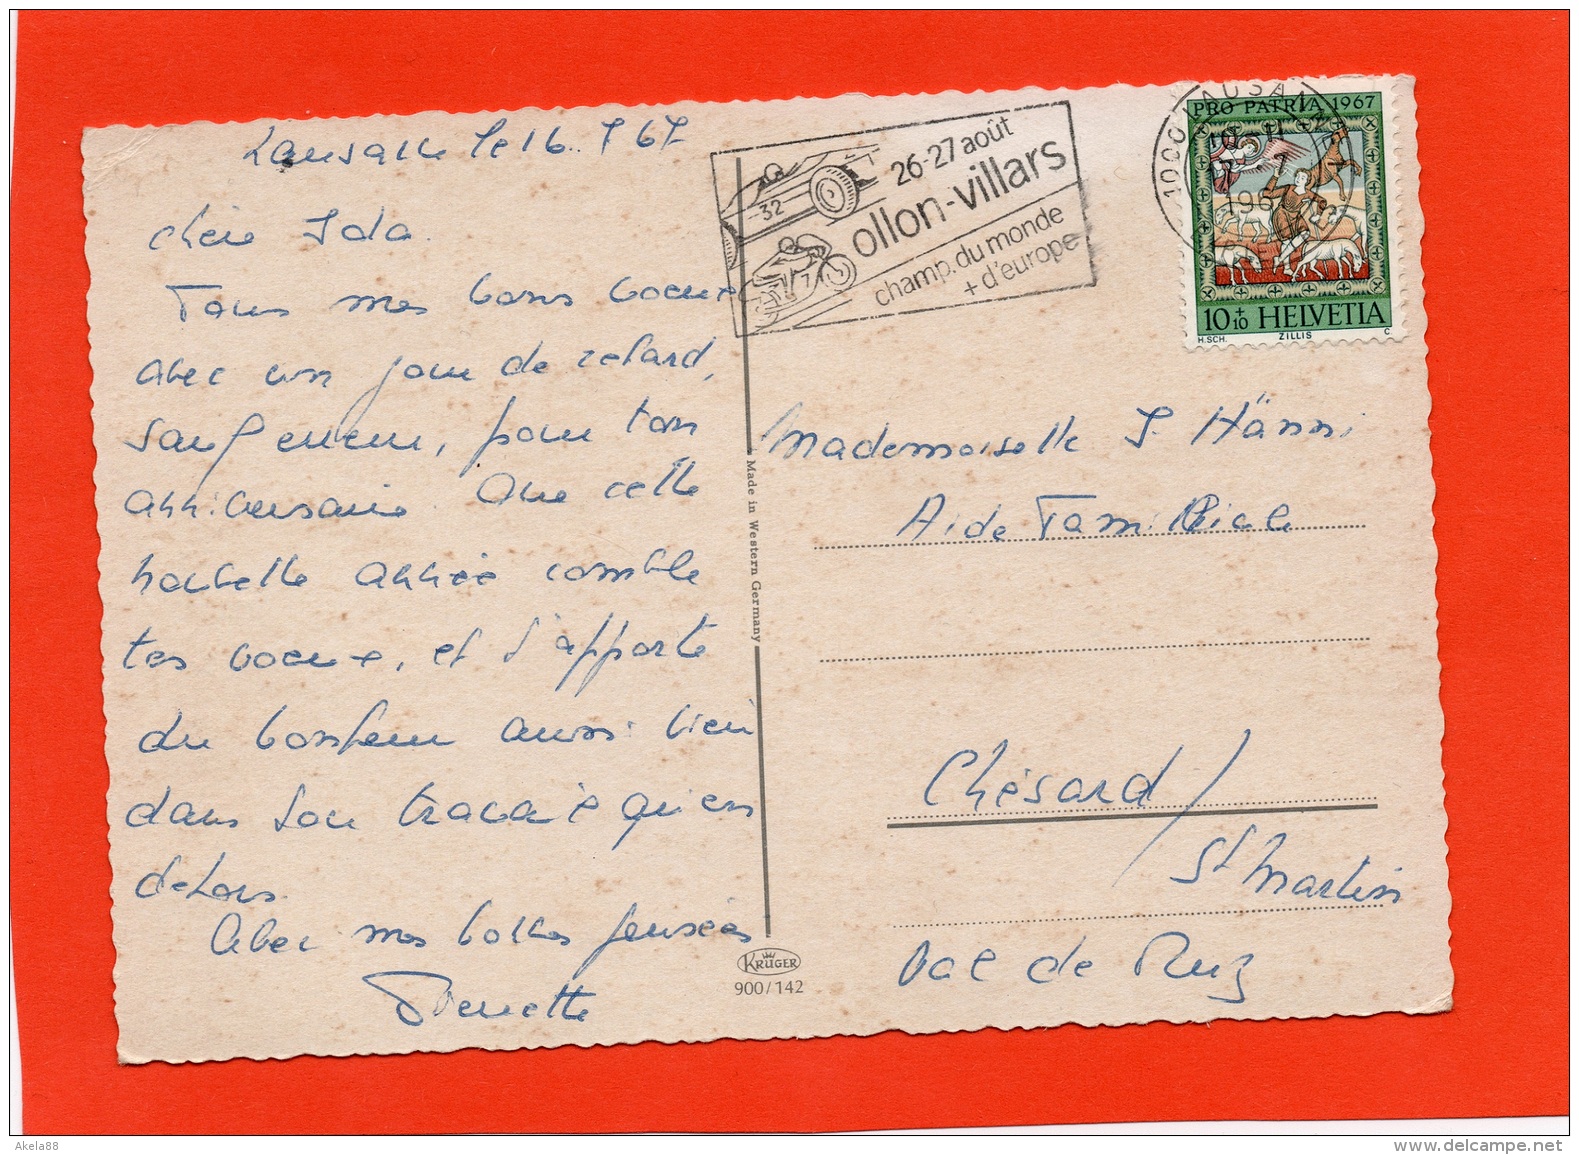 Lausanne le 16. 7 67
Chère Ida
Tous mes bons voeux
avec un jour de retard,
sauf erreur, pour ton
anniversaire. Que cette
nouvelle année comble
tes voeux, et t'apporte
du bonheur aussi bien
dans ton travail qu'en
dehors.
Avec mes bonnes pensées
Pierrette
26-27 août
ollon-villars
champ. du monde
+ d'europe
32
7
1000 LAUSANNE
1967
PRO PATRIA 1967
10+10 HELVETIA
H.SCH. ZILLIS C
Made in Western Germany
Mademoiselle I. Hänni
Aide Familiale
Chésard /
St Martin
Val de Ruz
KRÜGER
900/142
Akela88
www.delcampe.net